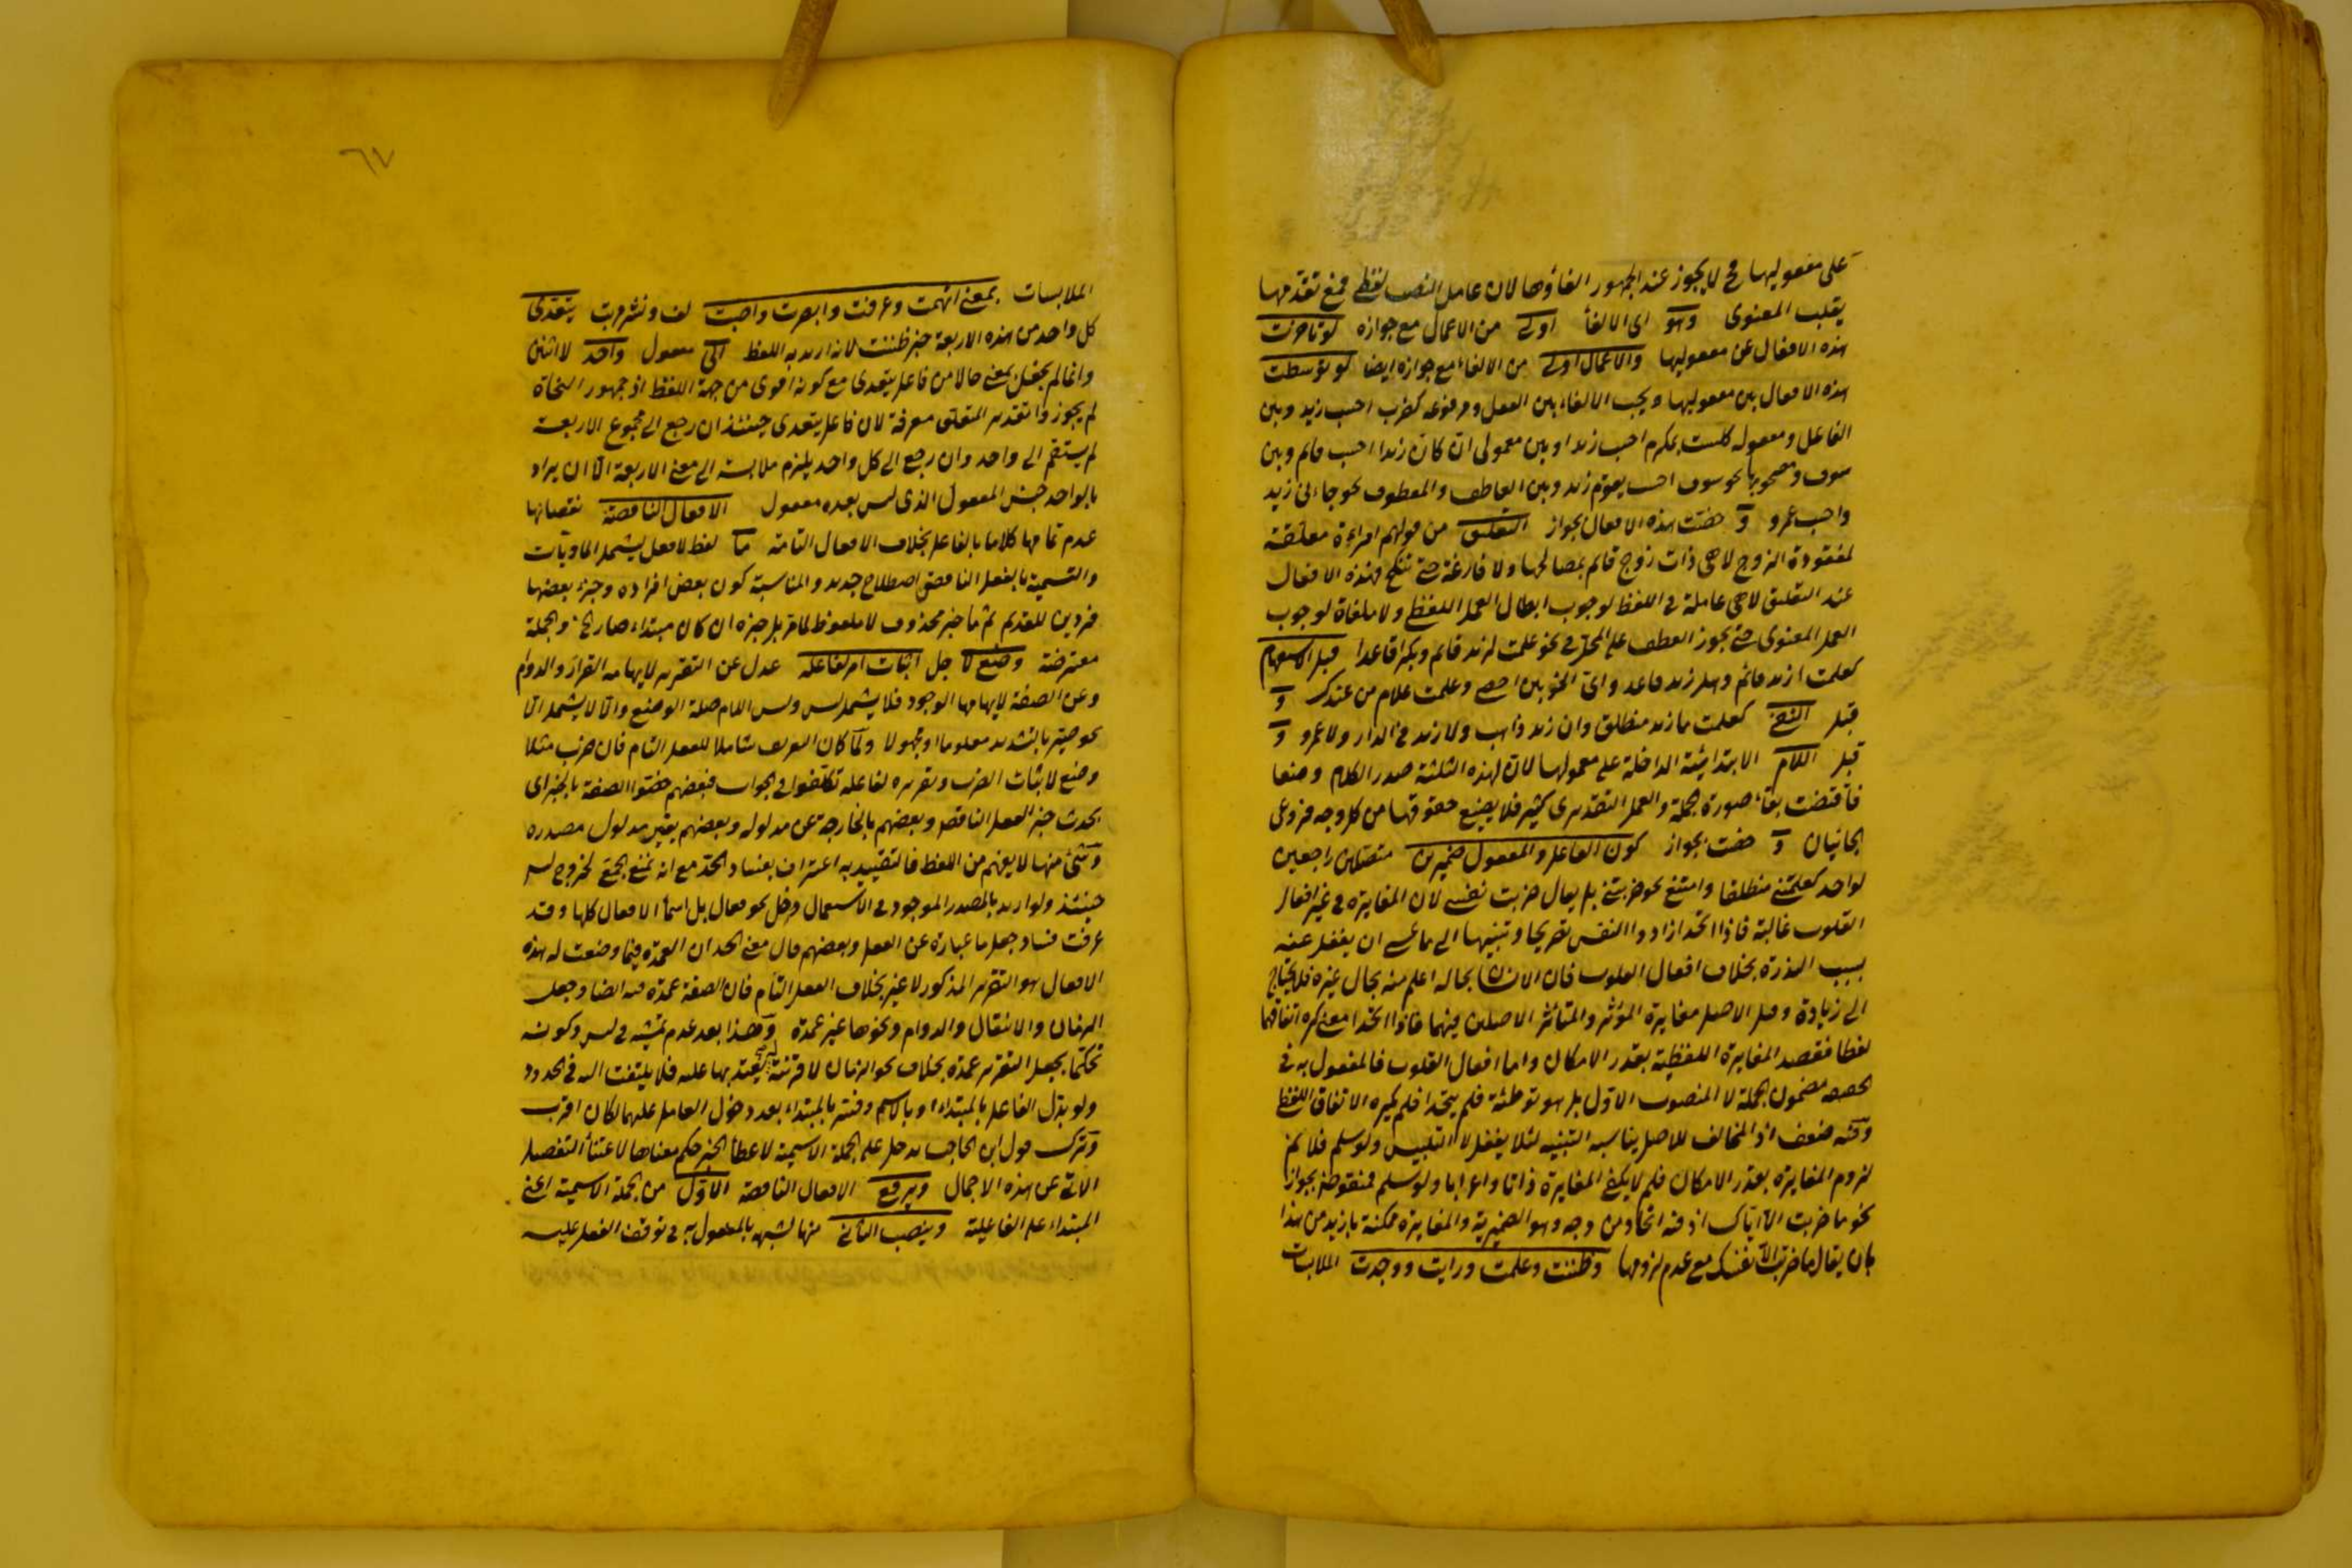 على مفعوليها فح لا يجوز عند الجمهور الغاؤها لان عامل النصب لفظى فمع تقدمها
يقلب المعنوى وهو اى الالغاء اولى من الاعمال مع جوازه لو تاخرت
هذه الافعال عن مفعوليها والاعمال اولى من الالغاء مع جوازه ايضا لو توسطت
هذه الافعال بين مفعوليها ويجب الالغاء بين الفعل ومرفوعه كضرب احسب زيد وبين
الفاعل ومعموله كلست بمكرم احسب زيدا وبين معمولى ان كان زيدا احسب قائم وبين
سوف ومصحوبها نحو سوف احسب يقوم زيد وبين العاطف والمعطوف نحو جاءنى زيد
واحسب عمرو و خصت هذه الافعال بجواز التعليق من قولهم امراءة معلقة
لمفقودة الزوج لا هى ذات زوج قائم بمصالحها ولا فارغة حتى تنكح فهذه الافعال
عند التعليق لا هى عاملة فى اللفظ لوجوب ابطال العمل اللفظى ولا ملغاة لوجوب
العمل المعنوى حتى يجوز العطف على المحل فى نحو علمت لزيد قائم وبكرا قاعدا قبل الاستفهام
كعلمت ازيد قائم وهل زيد قاعد واى الحزبين احصى وعلمت غلام من عندك و
قبل النفى كعلمت ما زيد منطلق وان زيد ذاهب ولا زيد فى الدار ولا عمرو و
قبل اللام الابتدائية الداخلة على معمولها لان لهذه الثلثة صدر الكلام وضعا
فاقتضت بقاء صورة الجملة والعمل التقديرى كثير فلا يضيع حقوقها من كل وجه فروعى
الجانبان و خصت بجواز كون الفاعل والمفعول ضميرين متصلين راجعين
لواحد كعلمتنى منطلقا وامتنع نحو ضربتنى بل يقال ضربت نفسى لان المغايرة فى غير افعال
القلوب غالبة فاذا اتحدا زادوا النفس تصريحا وتنبيها الى ما عسى ان يغفل عنه
بسبب الندرة بخلاف افعال القلوب فان الانسان بحاله اعلم منه بحال غيره فلا يحتاج
الى زيادة وقيل الاصل مغايرة المؤثر والمتاثر الاصلين فيهما فاذا اتحدا معنى كره اتفاقهما
لفظا فقصد المغايرة اللفظية بقدر الامكان واما افعال القلوب فالمفعول به فى
الحقيقة مضمون الجملة لا المنصوب الاول بل هو توطئة فلم يتحدا فلم يكره الاتفاق اللفظى
وفيه ضعف اذ المخالف للاصل يناسبه التنبيه لئلا يغفل لا التلبيس ولو سلم فلا نم
لزوم المغايرة بقدر الامكان فلم لا يكفى المغايرة ذاتا واعرابا ولو سلم فمنقوضة بجواز
نحو ما ضربت الا اياك اذ فيه اتحاد من وجه وهو الضميرية والمغايرة ممكنة بازيد من هذا
بان يقال ما ضربت الا نفسك مع عدم لزومها وظننت وعلمت ورايت ووجدت الملابسات
٦٧
الملابسات بمعنى اتهمت وعرفت وابصرت واصبت لف ونشر مرتب يتعدى
كل واحد من هذه الاربعة خبر ظننت لانه اريد به اللفظ الى مفعول واحد لا اثنين
وانما لم يجعل بمعنى حالا من فاعل يتعدى مع كونه اقوى من جهة اللفظ اذ جمهور النحاة
لم يجوزوا تقدير المتعلق معرفة لان فاعل يتعدى حينئذ ان رجع الى مجموع الاربعة
لم يستقم الى واحد وان رجع الى كل واحد يلزم ملابسته الى معنى الاربعة الا ان يراد
بالواحد جنس المفعول الذى ليس بعده مفعول الافعال الناقصة نقصانها
عدم تمامها كلاما بالفاعل بخلاف الافعال التامة ما لفظ لا فعل ليشمل الماديات
والتسمية بالفعل الناقص اصطلاح جديد والمناسبة كون بعض افراده وجزء بعضها
فردين للقديم ثم ما خبر محذوف لا ملفوظ لما مر بل جزءه ان كان مبتداء صار الخ والجملة
معترضة وضع لا جل اثبات امر لفاعله عدل عن التقرير لايهامه القرار والدوام
وعن الصفة لايهامها الوجود فلا يشمل ليس وليس اللام صلة الوضع والا لا يشمل الا
نحو صير بالتشديد معلوما او مجهولا ولما كان التعريف شاملا للفعل التام فان ضرب مثلا
وضع لاثبات الضرب وتقريره لفاعله تكلفوا فى الجواب فبعضهم خصوا الصفة بالخبر اى
بحدث خبر الفعل الناقص وبعضهم بالخارجة عن مدلوله وبعضهم بغير مدلول مصدره
وشئ منها لا يفهم من اللفظ فالتقييد به اعتراف بفساد الحد مع انه يمنع الجمع لخروج ليس
حينئذ ولو اريد بالمصدر الموجود فى الاستعمال دخل نحو فعال بل اسماء الافعال كلها وقد
عرفت فساد جعل ما عبارة عن الفعل وبعضهم قال معنى الحد ان العمدة فيما وضعت له هذه
الافعال هو التقرير المذكور لا غير بخلاف الفعل التام فان الصفة عمدة فيه ايضا وجعل
الزمان والانتقال والدوام ونحوها غير عمدة وهذا بعد عدم تمشيه فى ليس وكونه
تحكما بجعل التقرير عمدة بخلاف نحو الزمان لا قرينة يعتد بها عليه فلا يلتفت اليه فى الحدود
ولو بدل الفاعل بالمبتداء او بالاسم وفسر بالمبتداء بعد دخول العامل عليهما لكان اقرب
وترك قول ابن الحاجب يدخل على الجملة الاسمية لاعطاء الخبر حكم معناها لاغناء التفصيل
الاتى عن هذه الاجمال ويرفع الافعال الناقصة الاول من الجملة الاسمية اعنى
المبتداء على الفاعلية وينصب الثانى منها لشبهه بالمفعول به فى توقف الفعل عليه